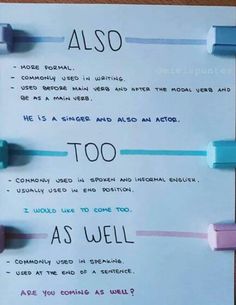 ALSO
- MORE FORMAL.
- COMMONLY USED IN WRITING.
- USED BEFORE MAIN VERB AND AFTER THE MODAL VERB AND
BE AS A MAIN VERB.
HE IS A SINGER AND ALSO AN ACTOR.
TOO
- COMMONLY USED IN SPOKEN AND INFORMAL ENGLISH.
- USUALLY USED IN END POSITION.
I WOULD LIKE TO COME TOO.
AS WELL
- COMMONLY USED IN SPEAKING.
- USED AT THE END OF A SENTENCE.
ARE YOU COMING AS WELL?